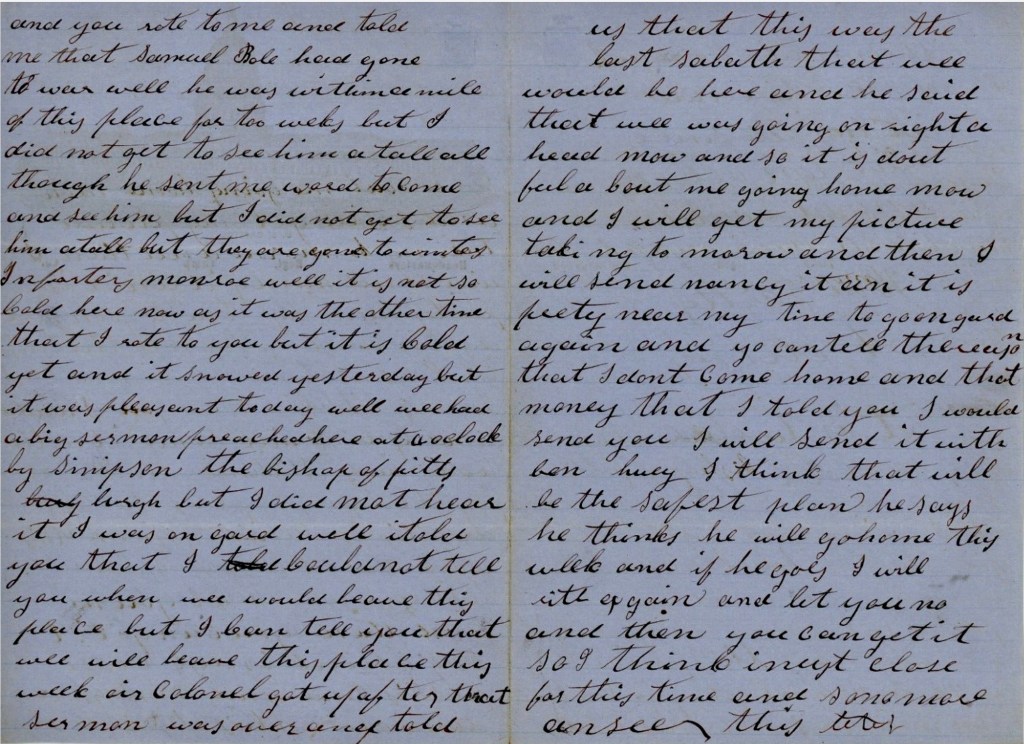 and you rote to me and told
me that Samuel Bole had gone
to war well he was within a mile
of this place for too weks but I
did not get to see him atall all
though he sent me word to come
and see him but I did not get to see
him atall but they are gone to winter
In forters monroe well it is not so
Cold here now as it was the other time
that I rote to you but it is Cold
yet and it snowed yesterday but
it was pleasant today well wee had
a big sermon preached here at oclock
by simpson the bishop of pitts
burgh but I did not hear
it I was on gard well i told
you that I Could not tell
you when wee would leave this
place but I Can tell you that
wee will leave this place this
week oir Colonel got up after that
sermon was over and told
us that this was the
last sabath that wee
would be here and he said
that wee was going on right a
head now and so it is dout
ful a bout me going home now
and I will get my picture
taking to morow and then I
will send nancy it an it is
prety near my time to go on gard
again and yo can tell the reason
that I dont Come home and that
money that I told you I would
send you I will send it with
ben huey I think that will
be the safest plan he says
he thinks he will go home this
week and if he goes I will
rite again and let you no
and then you Can get it
so I think i must close
for this time and so no more
ansee this leter